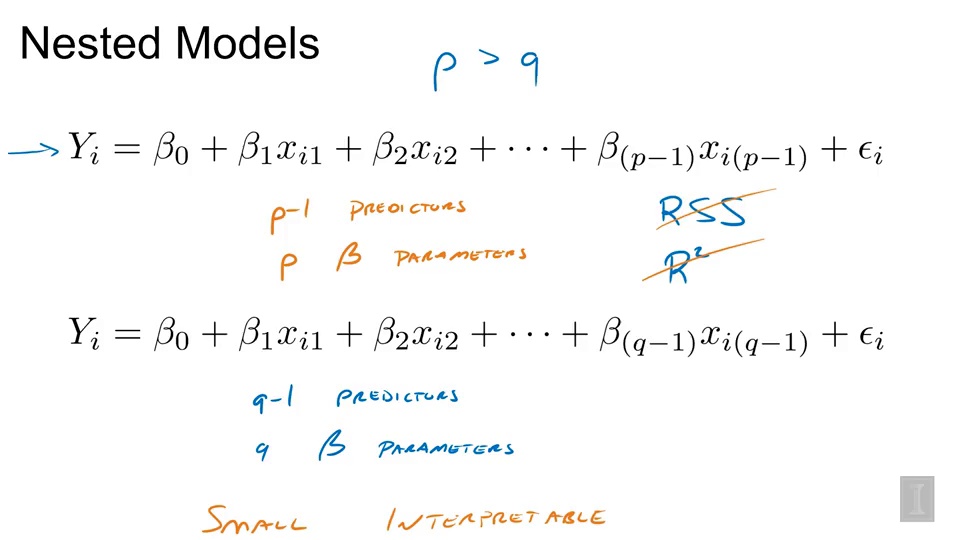 Nested Models
p > q
→ Yᵢ = β₀ + β₁xᵢ₁ + β₂xᵢ₂ + ⋯ + β₍ₚ₋₁₎xᵢ₍ₚ₋₁₎ + ϵᵢ
p-1 PREDICTORS
RSS
p β PARAMETERS
R²
Yᵢ = β₀ + β₁xᵢ₁ + β₂xᵢ₂ + ⋯ + β_(q−1)x_i(q−1) + ϵᵢ
q-1 PREDICTORS
q β PARAMETERS
SMALL INTERPRETABLE
I